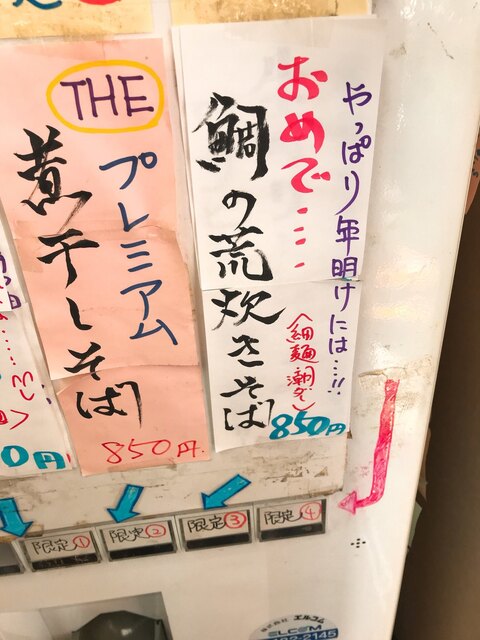 やっぱり年明けには…!!
おめで…
鯛の荒炊きそば
〈細麺潮だし〉
850円
THE
プレミアム
煮干しそば
850円
0円
限定①
限定②
限定③
限定④
株式会社 エルコム
ELCOM
2145